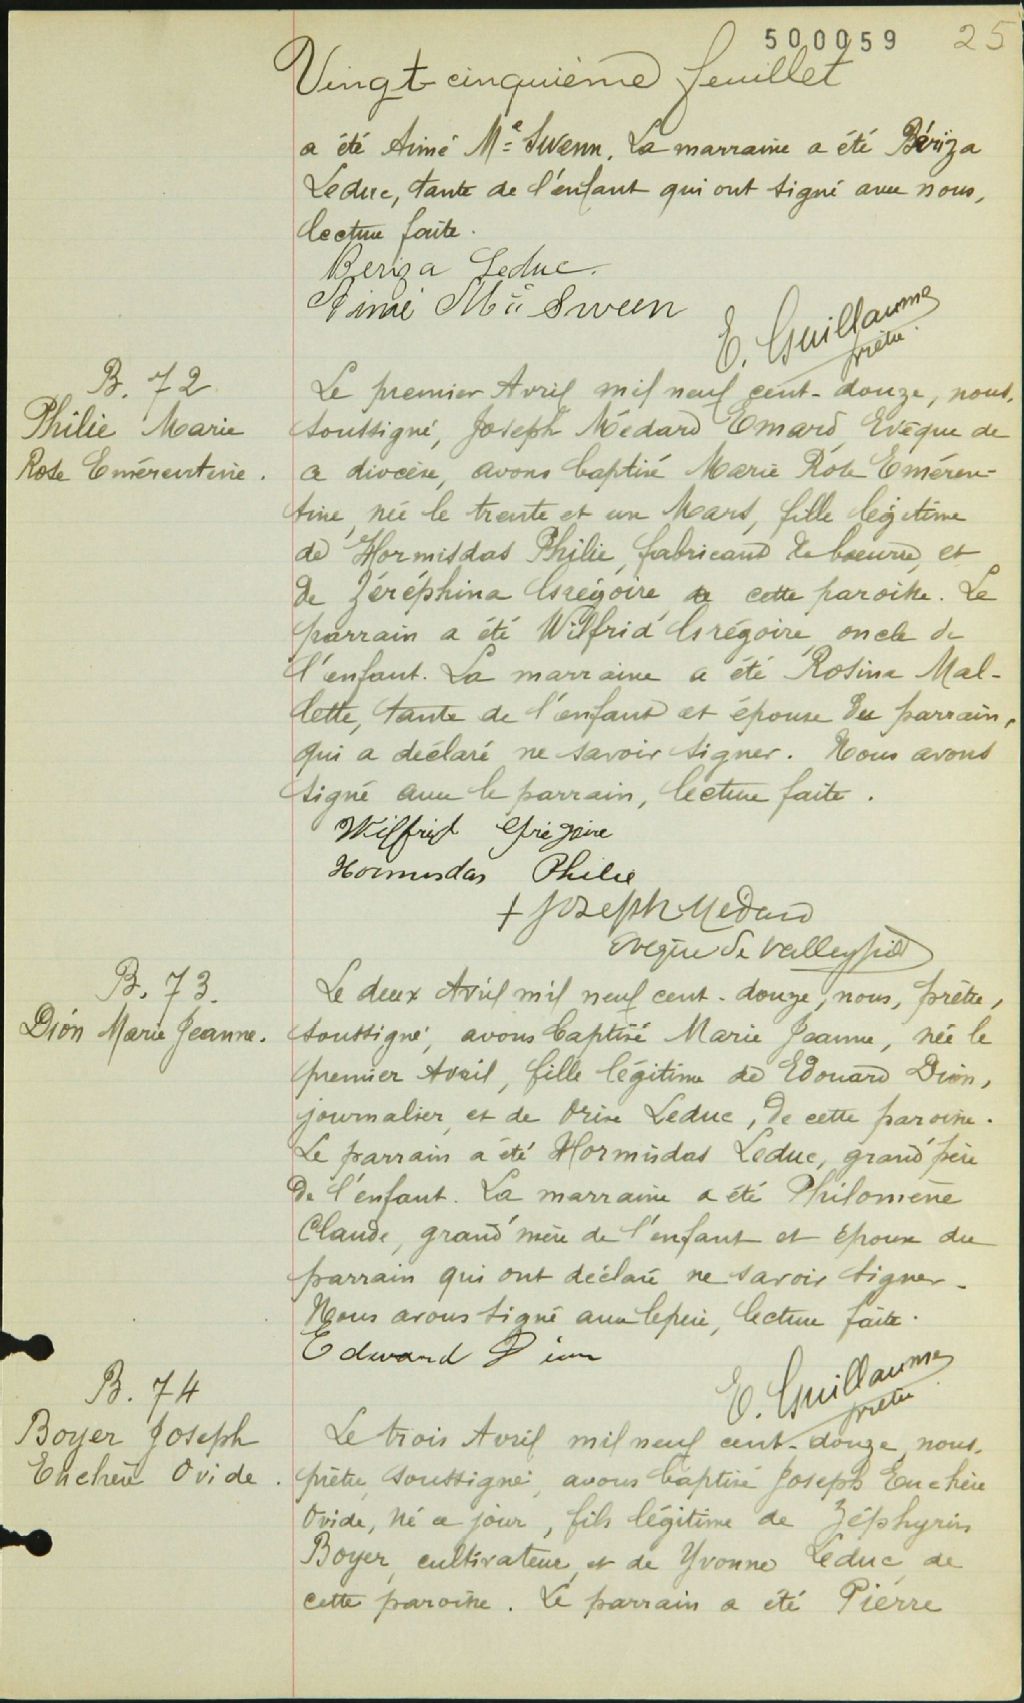 500059 25
Vingt-cinquième feuillet
a été Aimé Mc Sween. La marraine a été Bériza
Leduc, tante de l'enfant qui ont signé avec nous,
lecture faite.
Beriza Leduc.
Aimé Mc Sween
E. Guillaume
prêtre.
B. 72
Philie Marie
Rose Emérentine.
Le premier Avril mil neuf cent-douze, nous,
soussigné, Joseph Médard Emard, Evêque de
ce diocèse, avons baptisé Marie Rose Eméren-
tine, née le trente et un Mars, fille légitime
de Hormisdas Philie, fabricant de beurre, et
de Zéréphina Grégoire, de cette paroisse. Le
parrain a été Wilfrid Grégoire, oncle de
l'enfant. La marraine a été Rosina Mal-
lette, tante de l'enfant et épouse du parrain,
qui a déclaré ne savoir signer. Nous avons
signé avec le parrain, lecture faite.
Wilfrid Grégoire
Hormisdas Philie
+ Joseph Medard
Evêque de Valleyfield
B. 73.
Dion Marie Jeanne.
Le deux Avril mil neuf cent-douze, nous, prêtre,
soussigné, avons baptisé Marie Jeanne, née le
premier Avril, fille légitime de Edouard Dion,
journalier, et de Orise Leduc, de cette paroisse.
Le parrain a été Hormisdas Leduc, grand'père
de l'enfant. La marraine a été Philomène
Claude, grand'mère de l'enfant et épouse du
parrain qui ont déclaré ne savoir signer.
Nous avons signé avec le père, lecture faite.
Edward Dion
E. Guillaume
prêtre
B. 74
Boyer Joseph
Euchère Ovide.
Le trois Avril mil neuf cent-douze, nous,
prêtre, soussigné, avons baptisé Joseph Euchère
Ovide, né ce jour, fils légitime de Zéphyrin
Boyer, cultivateur, et de Yvonne Leduc, de
cette paroisse. Le parrain a été Pierre